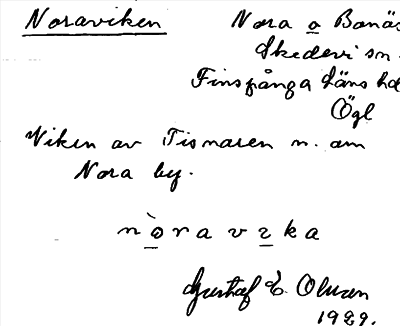 Noraviken Nora o Bonäs
Skedevi sn.
Finspånga läns hd
Ögl
Viken av Tisnaren n. om
Nora by.
nòravika
Gustaf E. Olsson
1929.